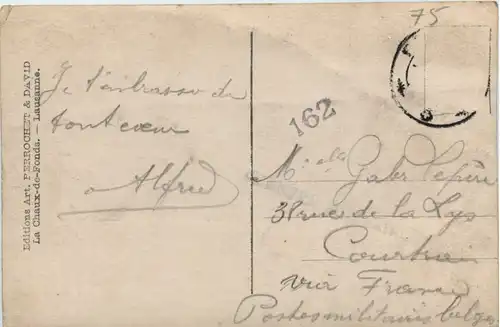 75
Editions Art. PERROCHET & DAVID
La Chaux-de-Fonds. — Lausanne.
Je t'embrasse de
tout cœur
Alfred
162
Melle Gaby Lefère
38 rue de la Lys
Courtrai
via France
Postes militaires belges